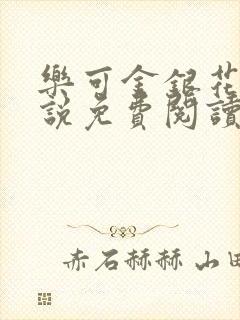 樂可金銀花
說免費閱讀
赤石赫赫 山田